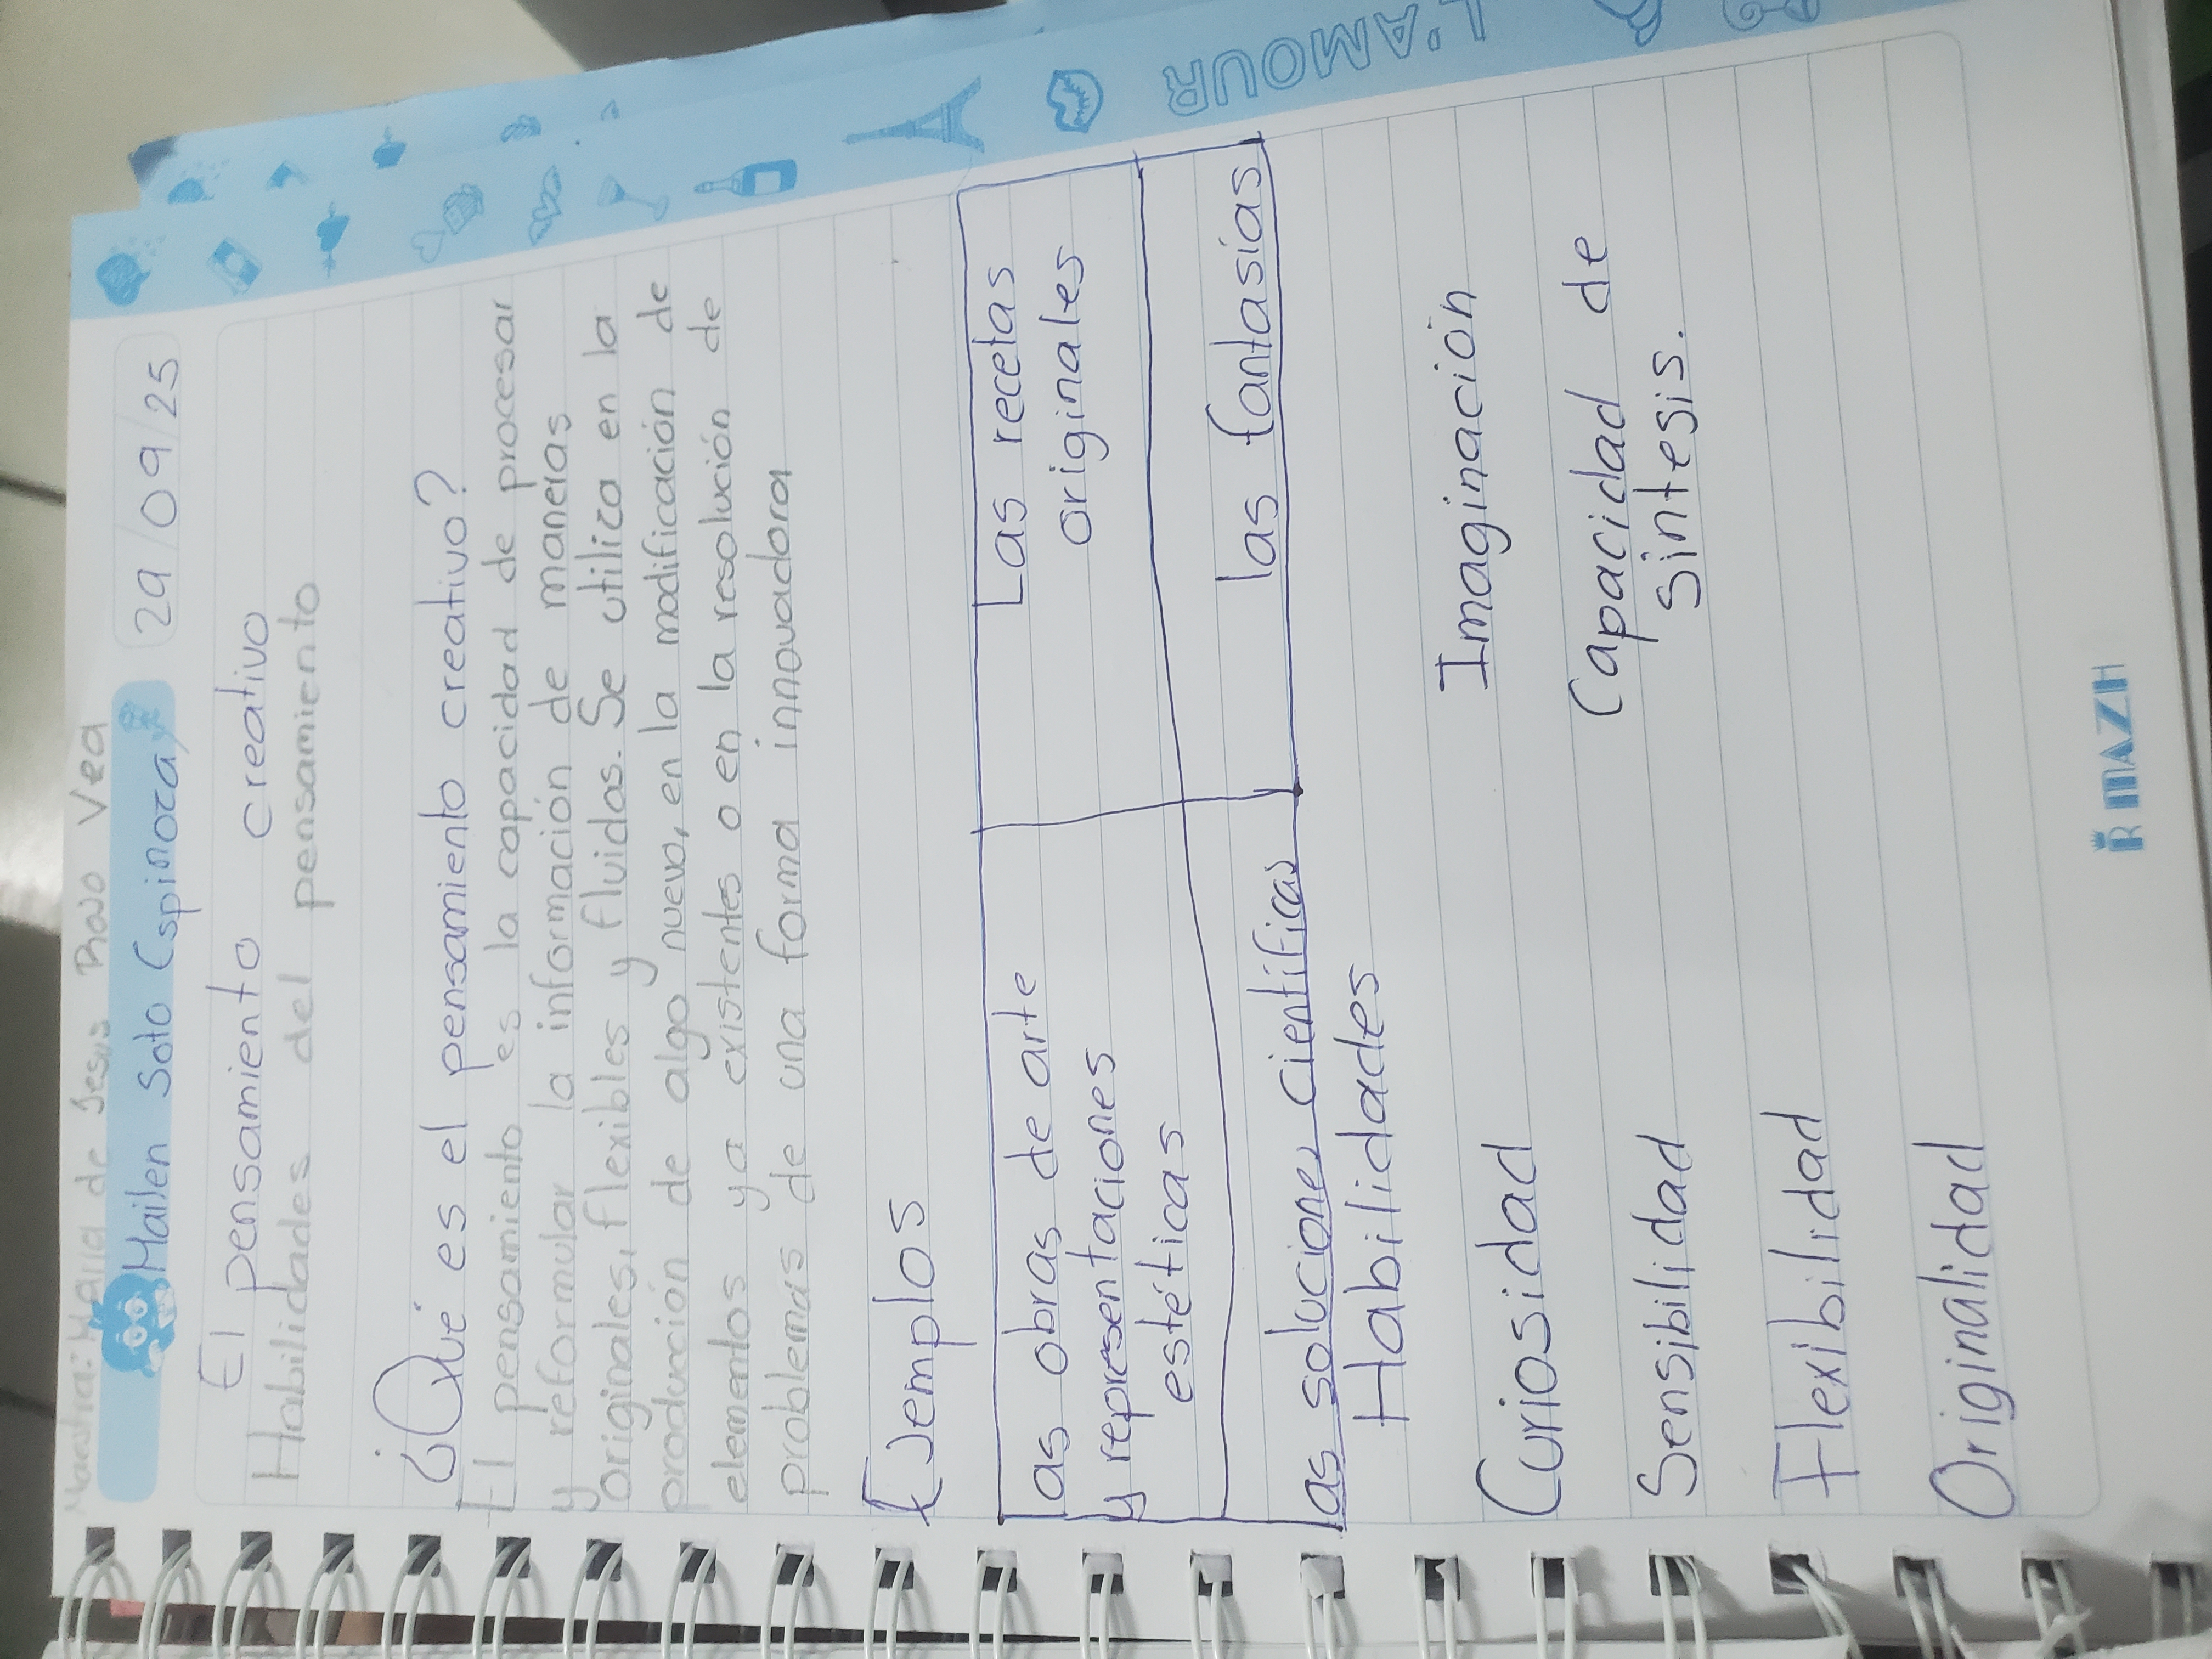 Maestra: Maria de Jesus Vea
Mailen Soto Espinoza
29/09/25
El pensamiento creativo
Habilidades del pensamiento
¿Qué es el pensamiento creativo?
El pensamiento es la capacidad de procesar
y reformular la información de maneras
originales, flexibles y fluidas. Se utiliza en la
producción de algo nuevo, en la modificación de
elementos ya existentes o en la resolución de
problemas de una forma innovadora
Ejemplos
las obras de arte
y representaciones
estéticas
Las recetas
originales
las soluciones cientificas
las fantasías
Habilidades
Curiosidad
Imaginación
Sensibilidad
Capacidad de
sintesis.
Flexibilidad
Originalidad
L'AMOUR
MAZH